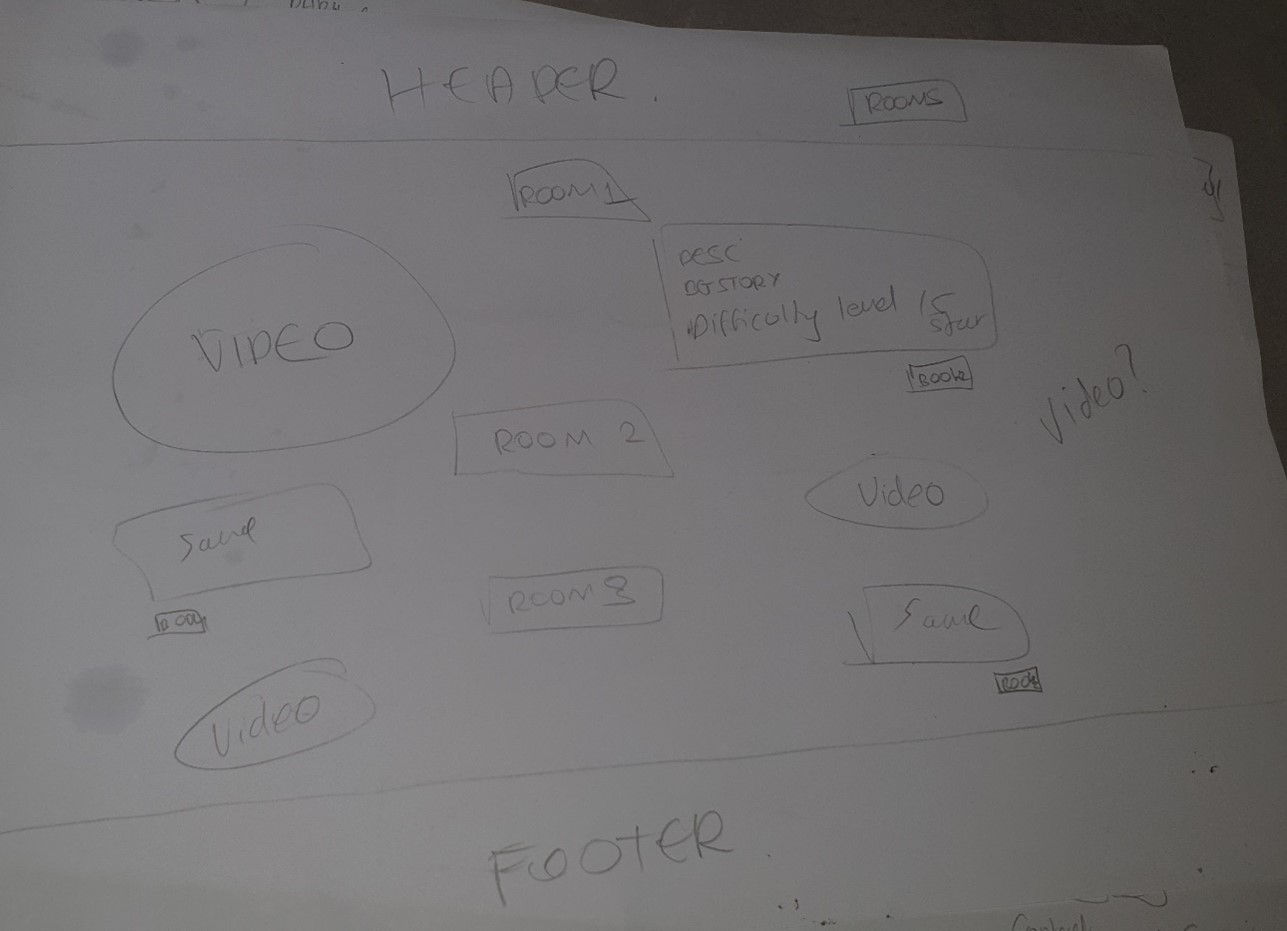 HEADER.
ROOMS
ROOM 1
DESC
BGSTORY
Difficulty level /5
star
VIDEO
BOOK
Video?
ROOM 2
Video
Same
BOOK
ROOM 3
Same
BOOK
Video
FOOTER.